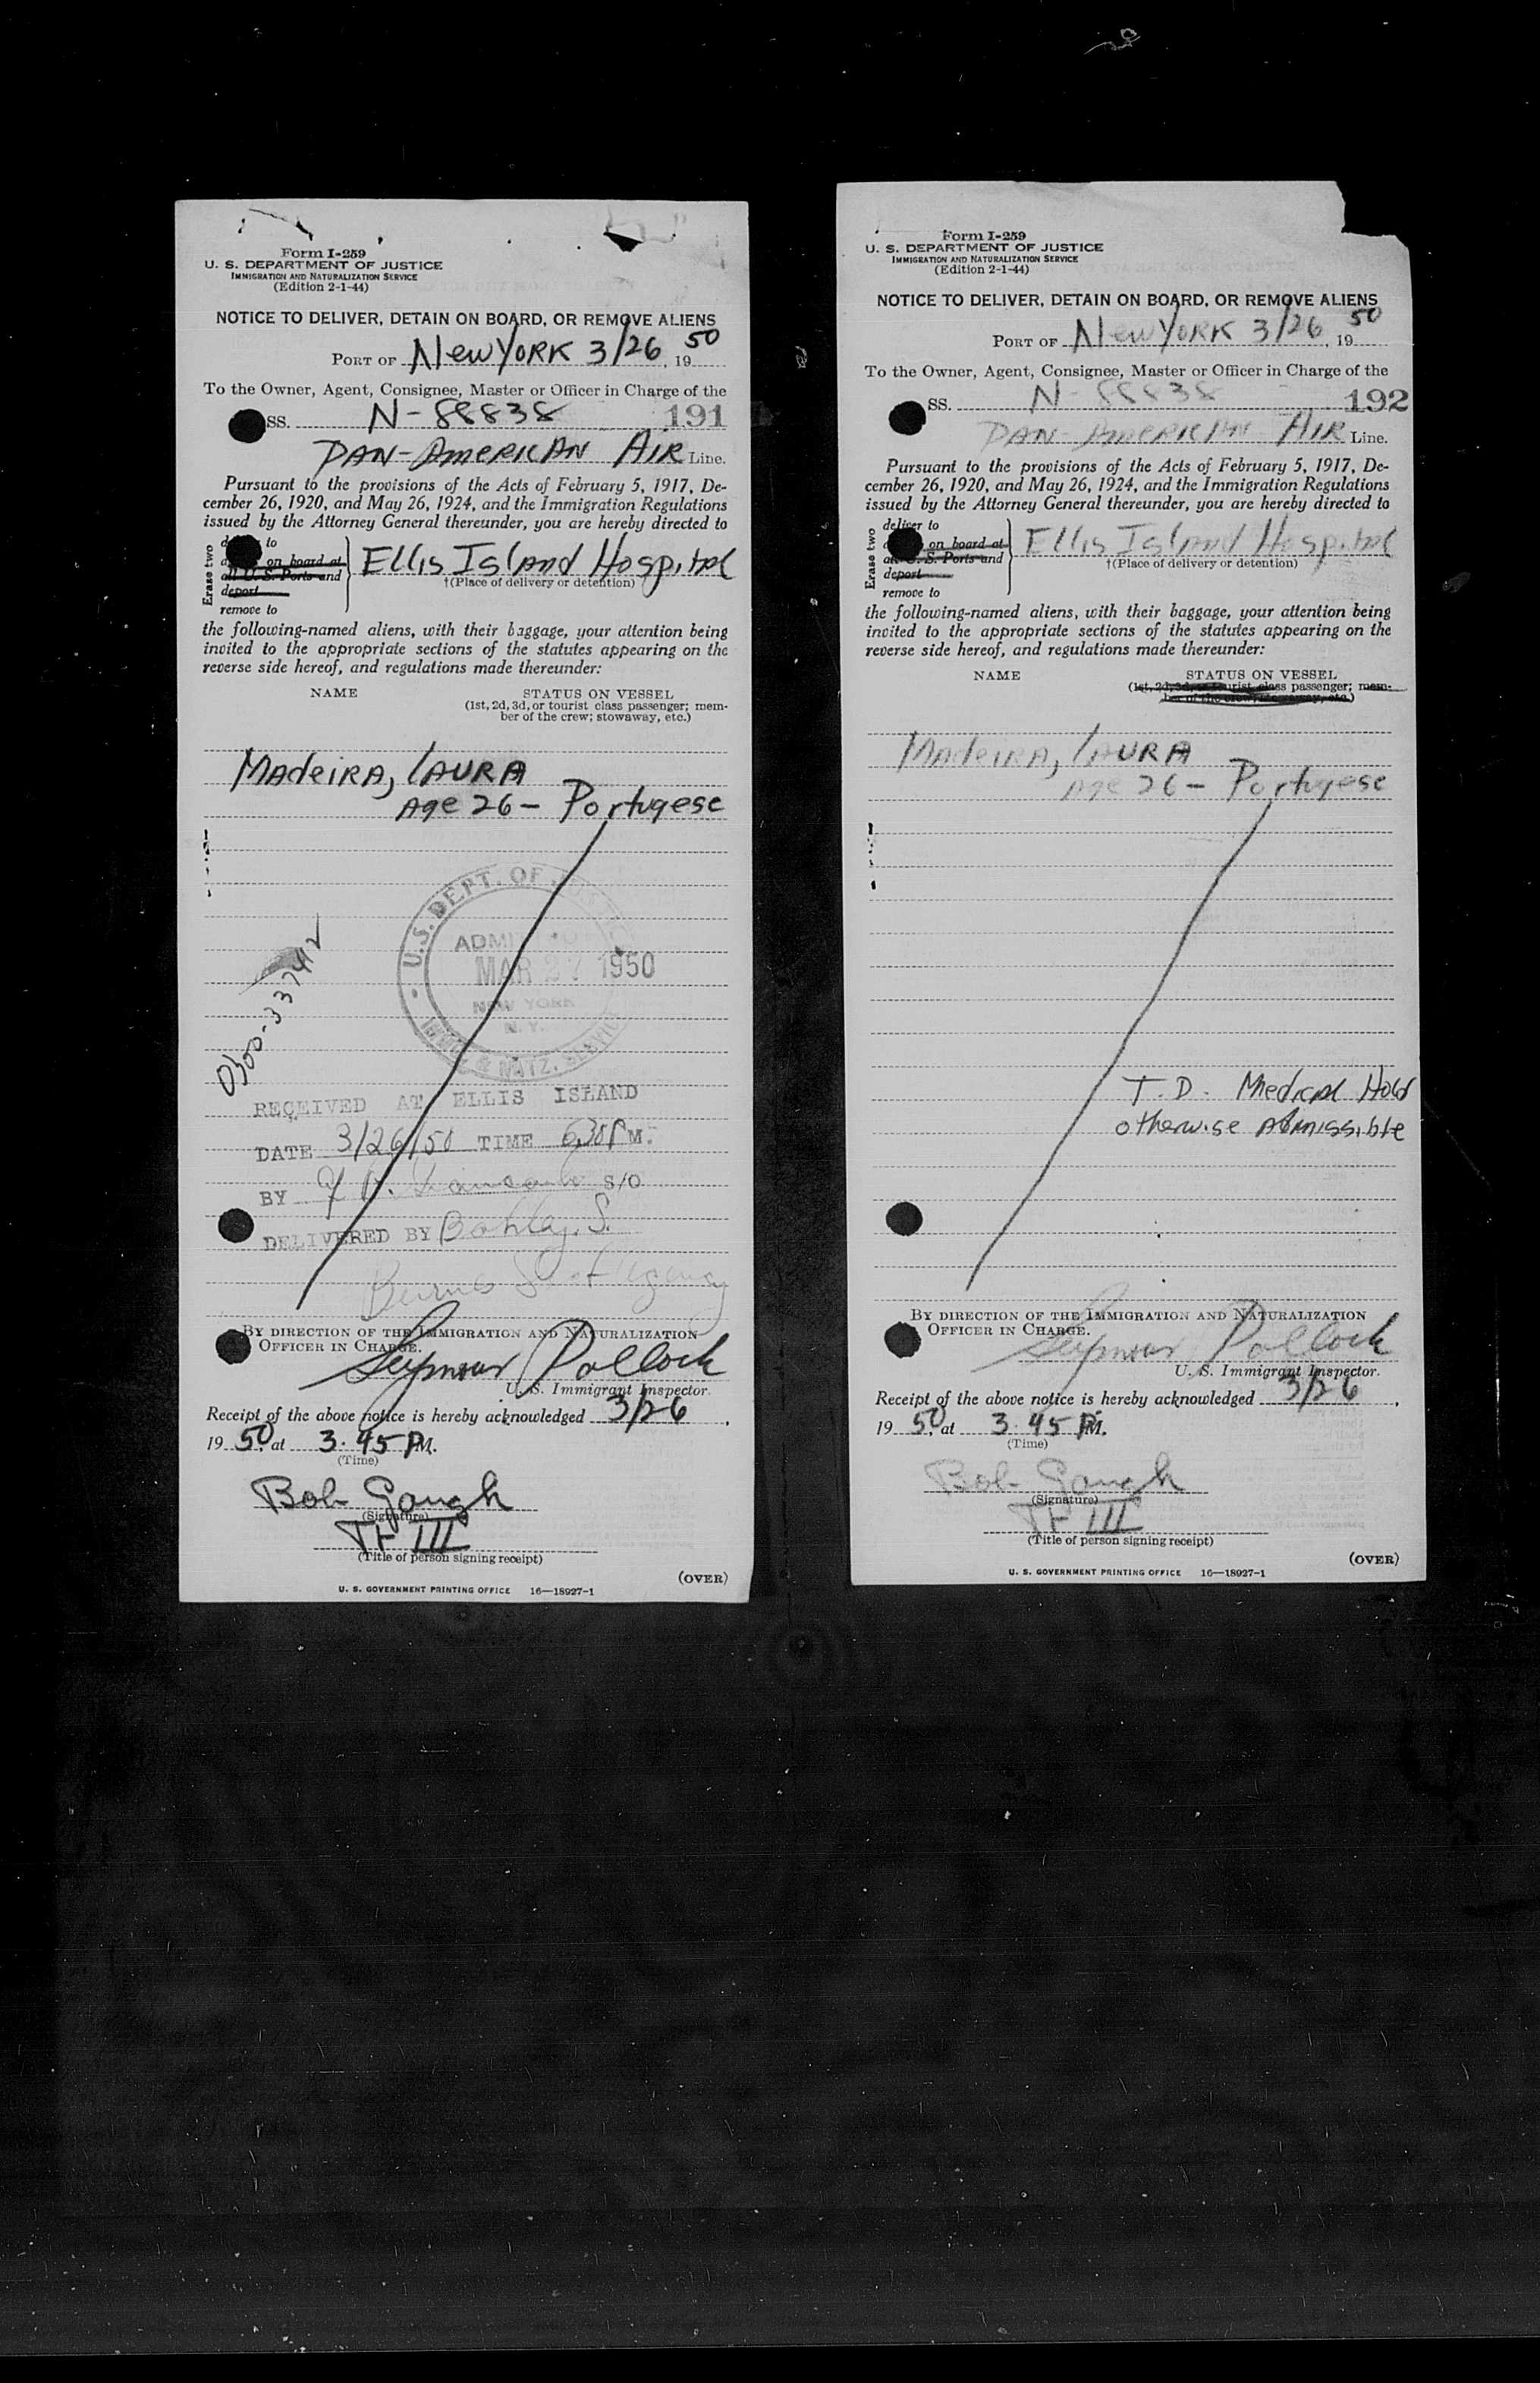 Form I-259
U. S. DEPARTMENT OF JUSTICE
IMMIGRATION AND NATURALIZATION SERVICE
(Edition 2-1-44)
NOTICE TO DELIVER, DETAIN ON BOARD, OR REMOVE ALIENS
PORT OF New YORK 3/26, 1950
To the Owner, Agent, Consignee, Master or Officer in Charge of the
SS. N-88838 191
PAN-AMERICAN AIR Line.
Pursuant to the provisions of the Acts of February 5, 1917, De-
cember 26, 1920, and May 26, 1924, and the Immigration Regulations
issued by the Attorney General thereunder, you are hereby directed to
Erase two
to
on board at
all U. S. Ports and
deport
remove to
Ellis Island Hospital
†(Place of delivery or detention)
the following-named aliens, with their baggage, your attention being
invited to the appropriate sections of the statutes appearing on the
reverse side hereof, and regulations made thereunder:
NAME STATUS ON VESSEL
(1st, 2d, 3d, or tourist class passenger; mem-
ber of the crew; stowaway, etc.)
MAdeiRA, lAURA
Age 26 - Portugese
U.S. DEPT. OF
MAR 27 1950
NEW YORK
N. Y.
IMMIG. & NATZ.
0300-337412
RECEIVED AT ELLIS ISLAND
DATE 3/26/50 TIME 630P M.
BY S/O
DELIVERED BY
BY DIRECTION OF THE IMMIGRATION AND NATURALIZATION
OFFICER IN CHARGE.
Seymour Pollock
U. S. Immigrant Inspector.
Receipt of the above notice is hereby acknowledged 3/26,
1950, at 3.45 P.M.
(Time)
Bob Gough
(Signature)
Tr III
(Title of person signing receipt)
(OVER)
U. S. GOVERNMENT PRINTING OFFICE 16—18927-1
Form I-259
U. S. DEPARTMENT OF JUSTICE
IMMIGRATION AND NATURALIZATION SERVICE
(Edition 2-1-44)
NOTICE TO DELIVER, DETAIN ON BOARD, OR REMOVE ALIENS
PORT OF New YORK 3/26, 1950
To the Owner, Agent, Consignee, Master or Officer in Charge of the
SS. N-88838 192
PAN-AMERICAN AIR Line.
Pursuant to the provisions of the Acts of February 5, 1917, De-
cember 26, 1920, and May 26, 1924, and the Immigration Regulations
issued by the Attorney General thereunder, you are hereby directed to
Erase two
deliver to
on board at
U. S. Ports and
deport
remove to
Ellis Island Hospital
†(Place of delivery or detention)
the following-named aliens, with their baggage, your attention being
invited to the appropriate sections of the statutes appearing on the
reverse side hereof, and regulations made thereunder:
NAME STATUS ON VESSEL
(1st, 2d, 3d, or tourist class passenger; mem-
ber of the crew; stowaway, etc.)
MAdeiRA, lAURA
Age 26 - Portugese
T. D. Medical Hold
otherwise Admissible
BY DIRECTION OF THE IMMIGRATION AND NATURALIZATION
OFFICER IN CHARGE.
Seymour Pollock
U. S. Immigrant Inspector.
Receipt of the above notice is hereby acknowledged 3/26,
1950, at 3.45 P.M.
(Time)
Bob Gough
(Signature)
Tr III
(Title of person signing receipt)
(OVER)
U. S. GOVERNMENT PRINTING OFFICE 16—18927-1